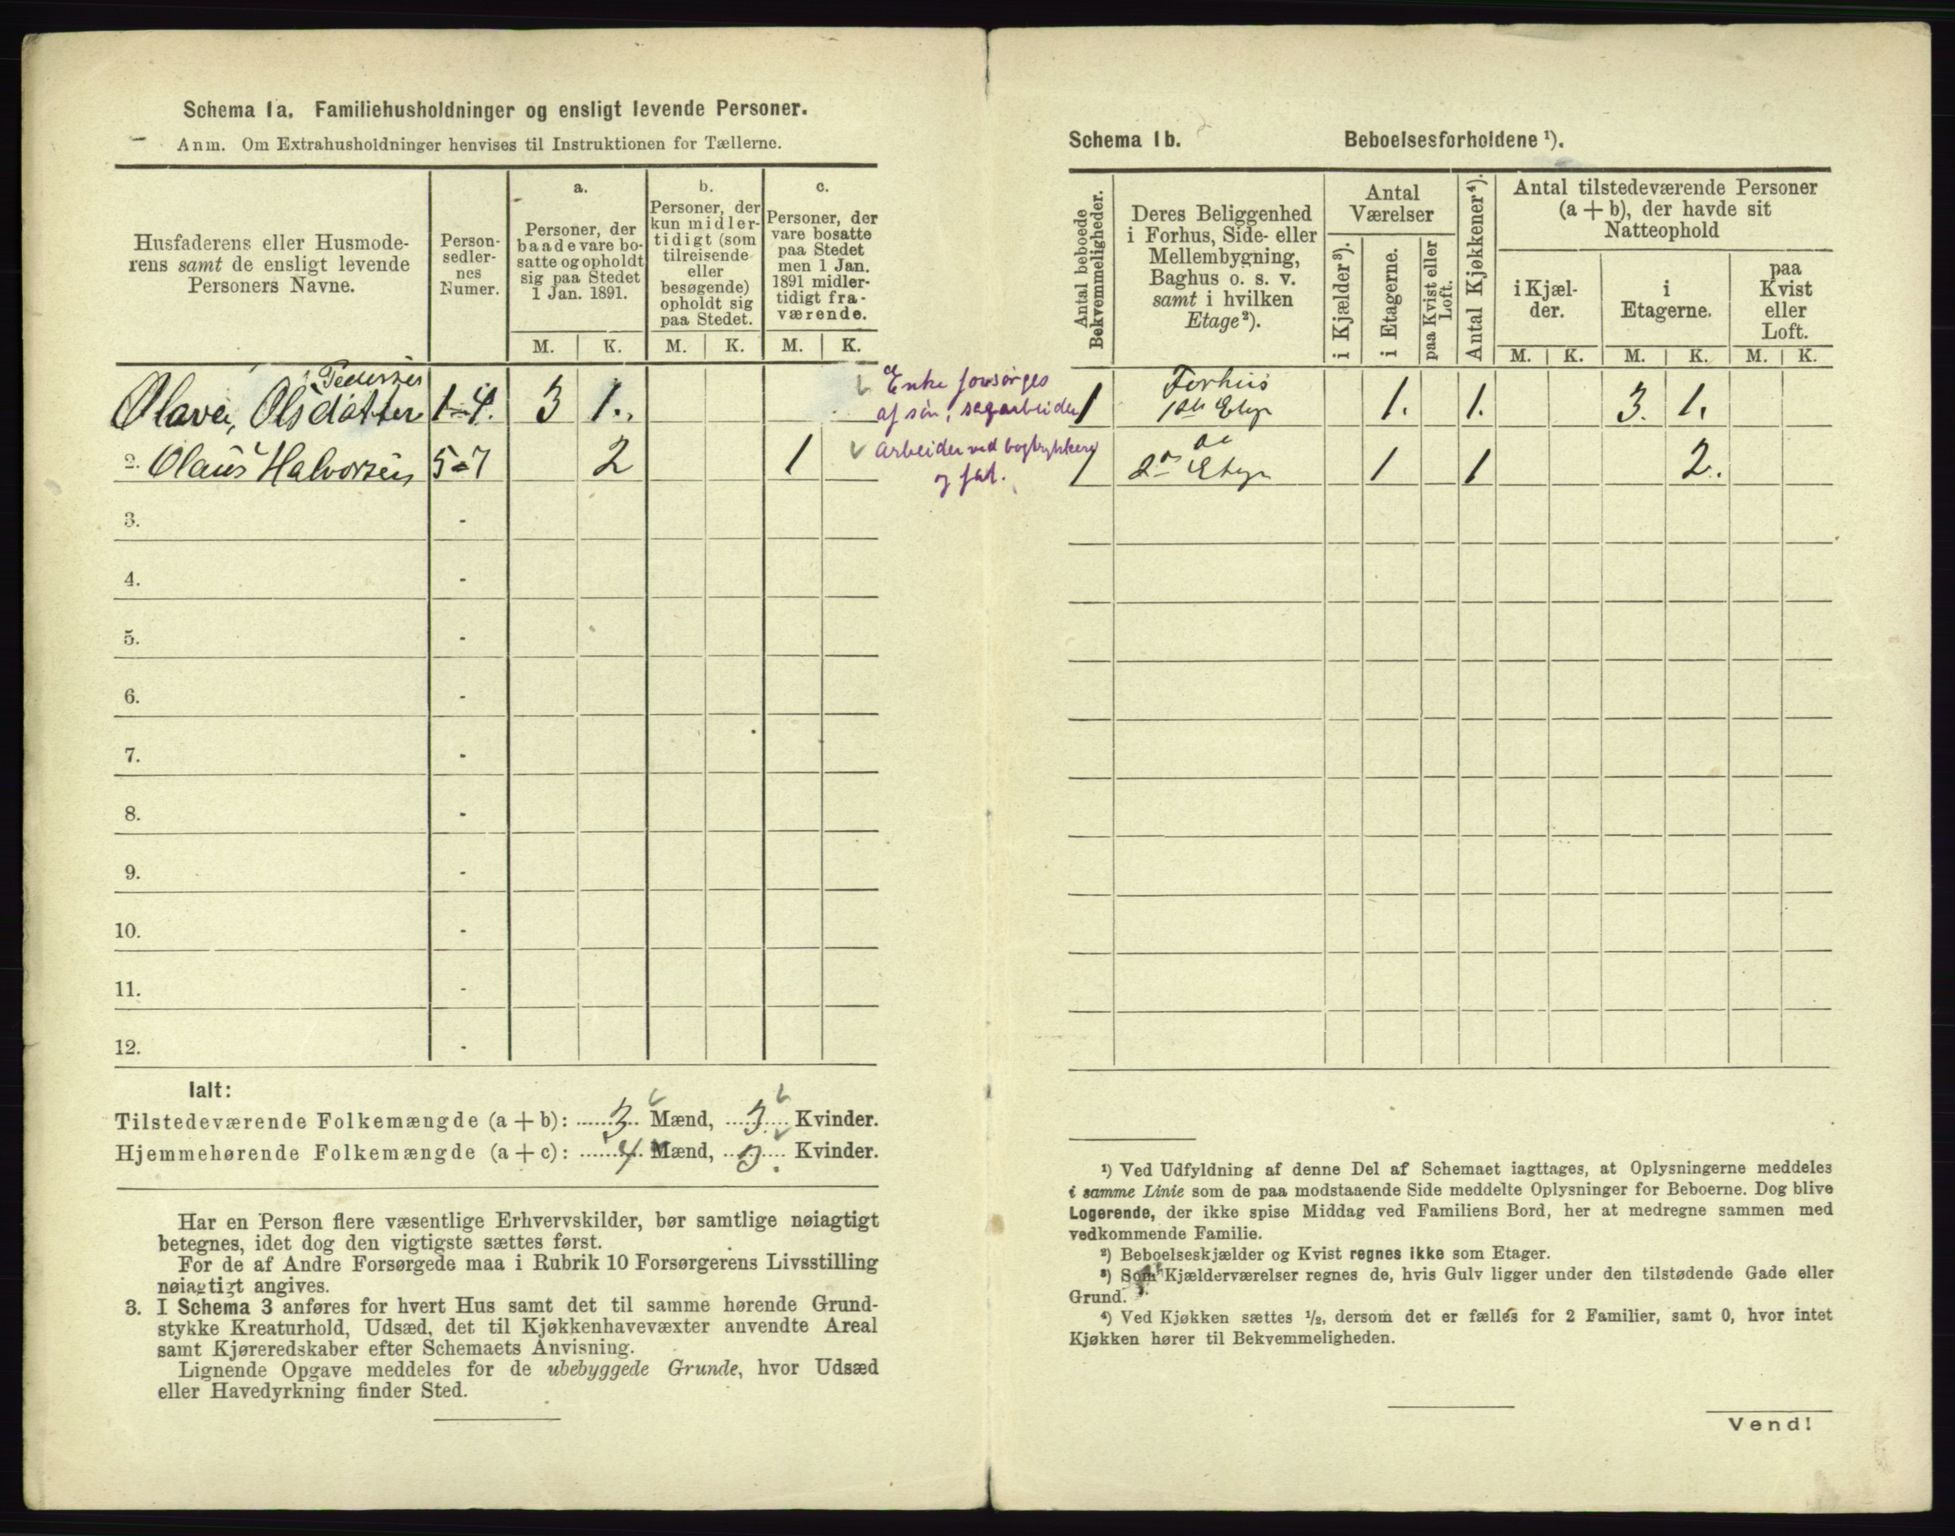 Schema 1a. Familiehusholdninger og ensligt levende Personer.
Anm. Om Extrahusholdninger henvises til Instruktionen for Tællerne.
Husfaderens eller Husmode-
rens samt de ensligt levende
Personers Navne.
Person-
sedler-
nes
Numer.
a.
Personer, der
baade vare bo-
satte og opholdt
sig paa Stedet
1 Jan. 1891.
b.
Personer, der
kun midler-
tidigt (som
tilreisende
eller
besøgende)
opholdt sig
paa Stedet.
c.
Personer, der
vare bosatte
paa Stedet
men 1 Jan.
1891 midler-
tidigt fra-
værende.
M. K. M. K. M. K.
Pedersen
Olava, Olsdatter 1-4. 3 1.
Enke forsørges
af søn, sagarbeider
2. Olaus Halvorsen 5-7 2 1
Arbeider ved bogtrykkeri
og fab.
3. -
4. -
5. -
6. -
7. -
8. -
9. -
10. -
11. -
12. -
Ialt:
Tilstedeværende Folkemængde (a + b): 3 Mænd, 3 Kvinder.
Hjemmehørende Folkemængde (a + c): 4 Mænd, 3 Kvinder.
Har en Person flere væsentlige Erhvervskilder, bør samtlige nøiagtigt
betegnes, idet dog den vigtigste sættes først.
For de af Andre Forsørgede maa i Rubrik 10 Forsørgerens Livsstilling
nøiagtigt angives.
3. I Schema 3 anføres for hvert Hus samt det til samme hørende Grund-
stykke Kreaturhold, Udsæd, det til Kjøkkenhavevæxter anvendte Areal
samt Kjøreredskaber efter Schemaets Anvisning.
Lignende Opgave meddeles for de ubebyggede Grunde, hvor Udsæd
eller Havedyrkning finder Sted.
Schema 1b. Beboelsesforholdene ¹).
Antal beboede
Bekvemmeligheder.
Deres Beliggenhed
i Forhus, Side- eller
Mellembygning,
Baghus o. s. v.
samt i hvilken
Etage²).
Antal
Værelser
i Kjælder³).
i Etagerne.
paa Kvist eller
Loft.
Antal Kjøkkener⁴).
Antal tilstedeværende Personer
(a + b), der havde sit
Natteophold
i Kjæl-
der.
i
Etagerne.
paa
Kvist
eller
Loft.
M. K. M. K. M. K.
Forhus
1 1ste Etage 1. 1. 3. 1.
do
1 2den Etage 1 1 2.
¹) Ved Udfyldning af denne Del af Schemaet iagttages, at Oplysningerne meddeles
i samme Linie som de paa modstaaende Side meddelte Oplysninger for Beboerne. Dog blive
Logerende, der ikke spise Middag ved Familiens Bord, her at medregne sammen med
vedkommende Familie.
²) Beboelseskjælder og Kvist regnes ikke som Etager.
³) Som Kjælderværelser regnes de, hvis Gulv ligger under den tilstødende Gade eller
Grund.
⁴) Ved Kjøkken sættes ½, dersom det er fælles for 2 Familier, samt 0, hvor intet
Kjøkken hører til Bekvemmeligheden.
Vend!